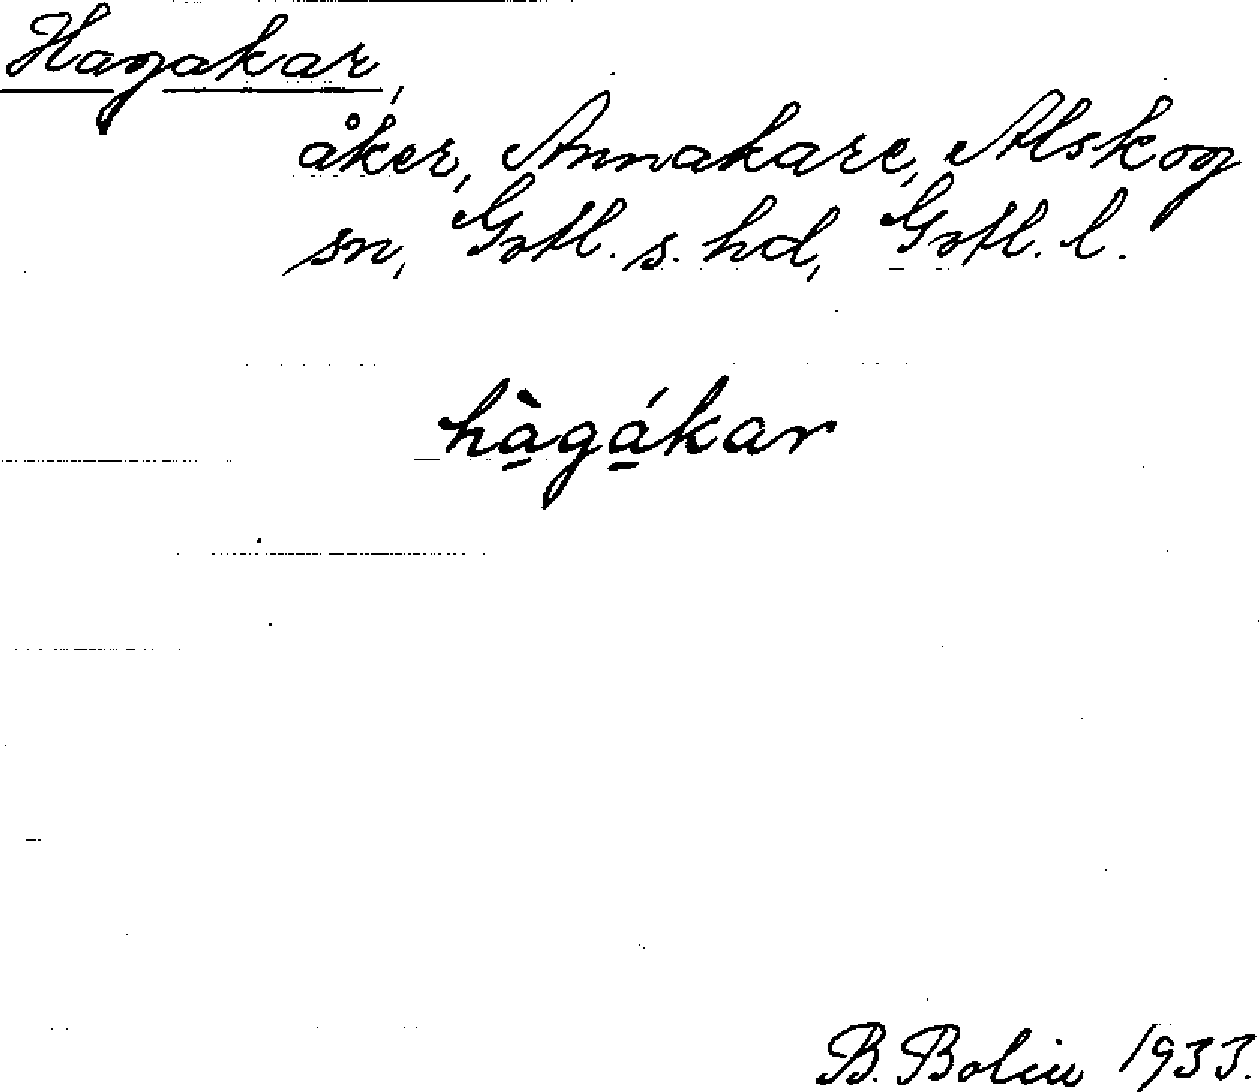 Hagakar,
åker, Annakare, Alskog
sn, Gotl. s. hd, Gotl. l.
hà̱gá̱kar
B. Bolin 1933.